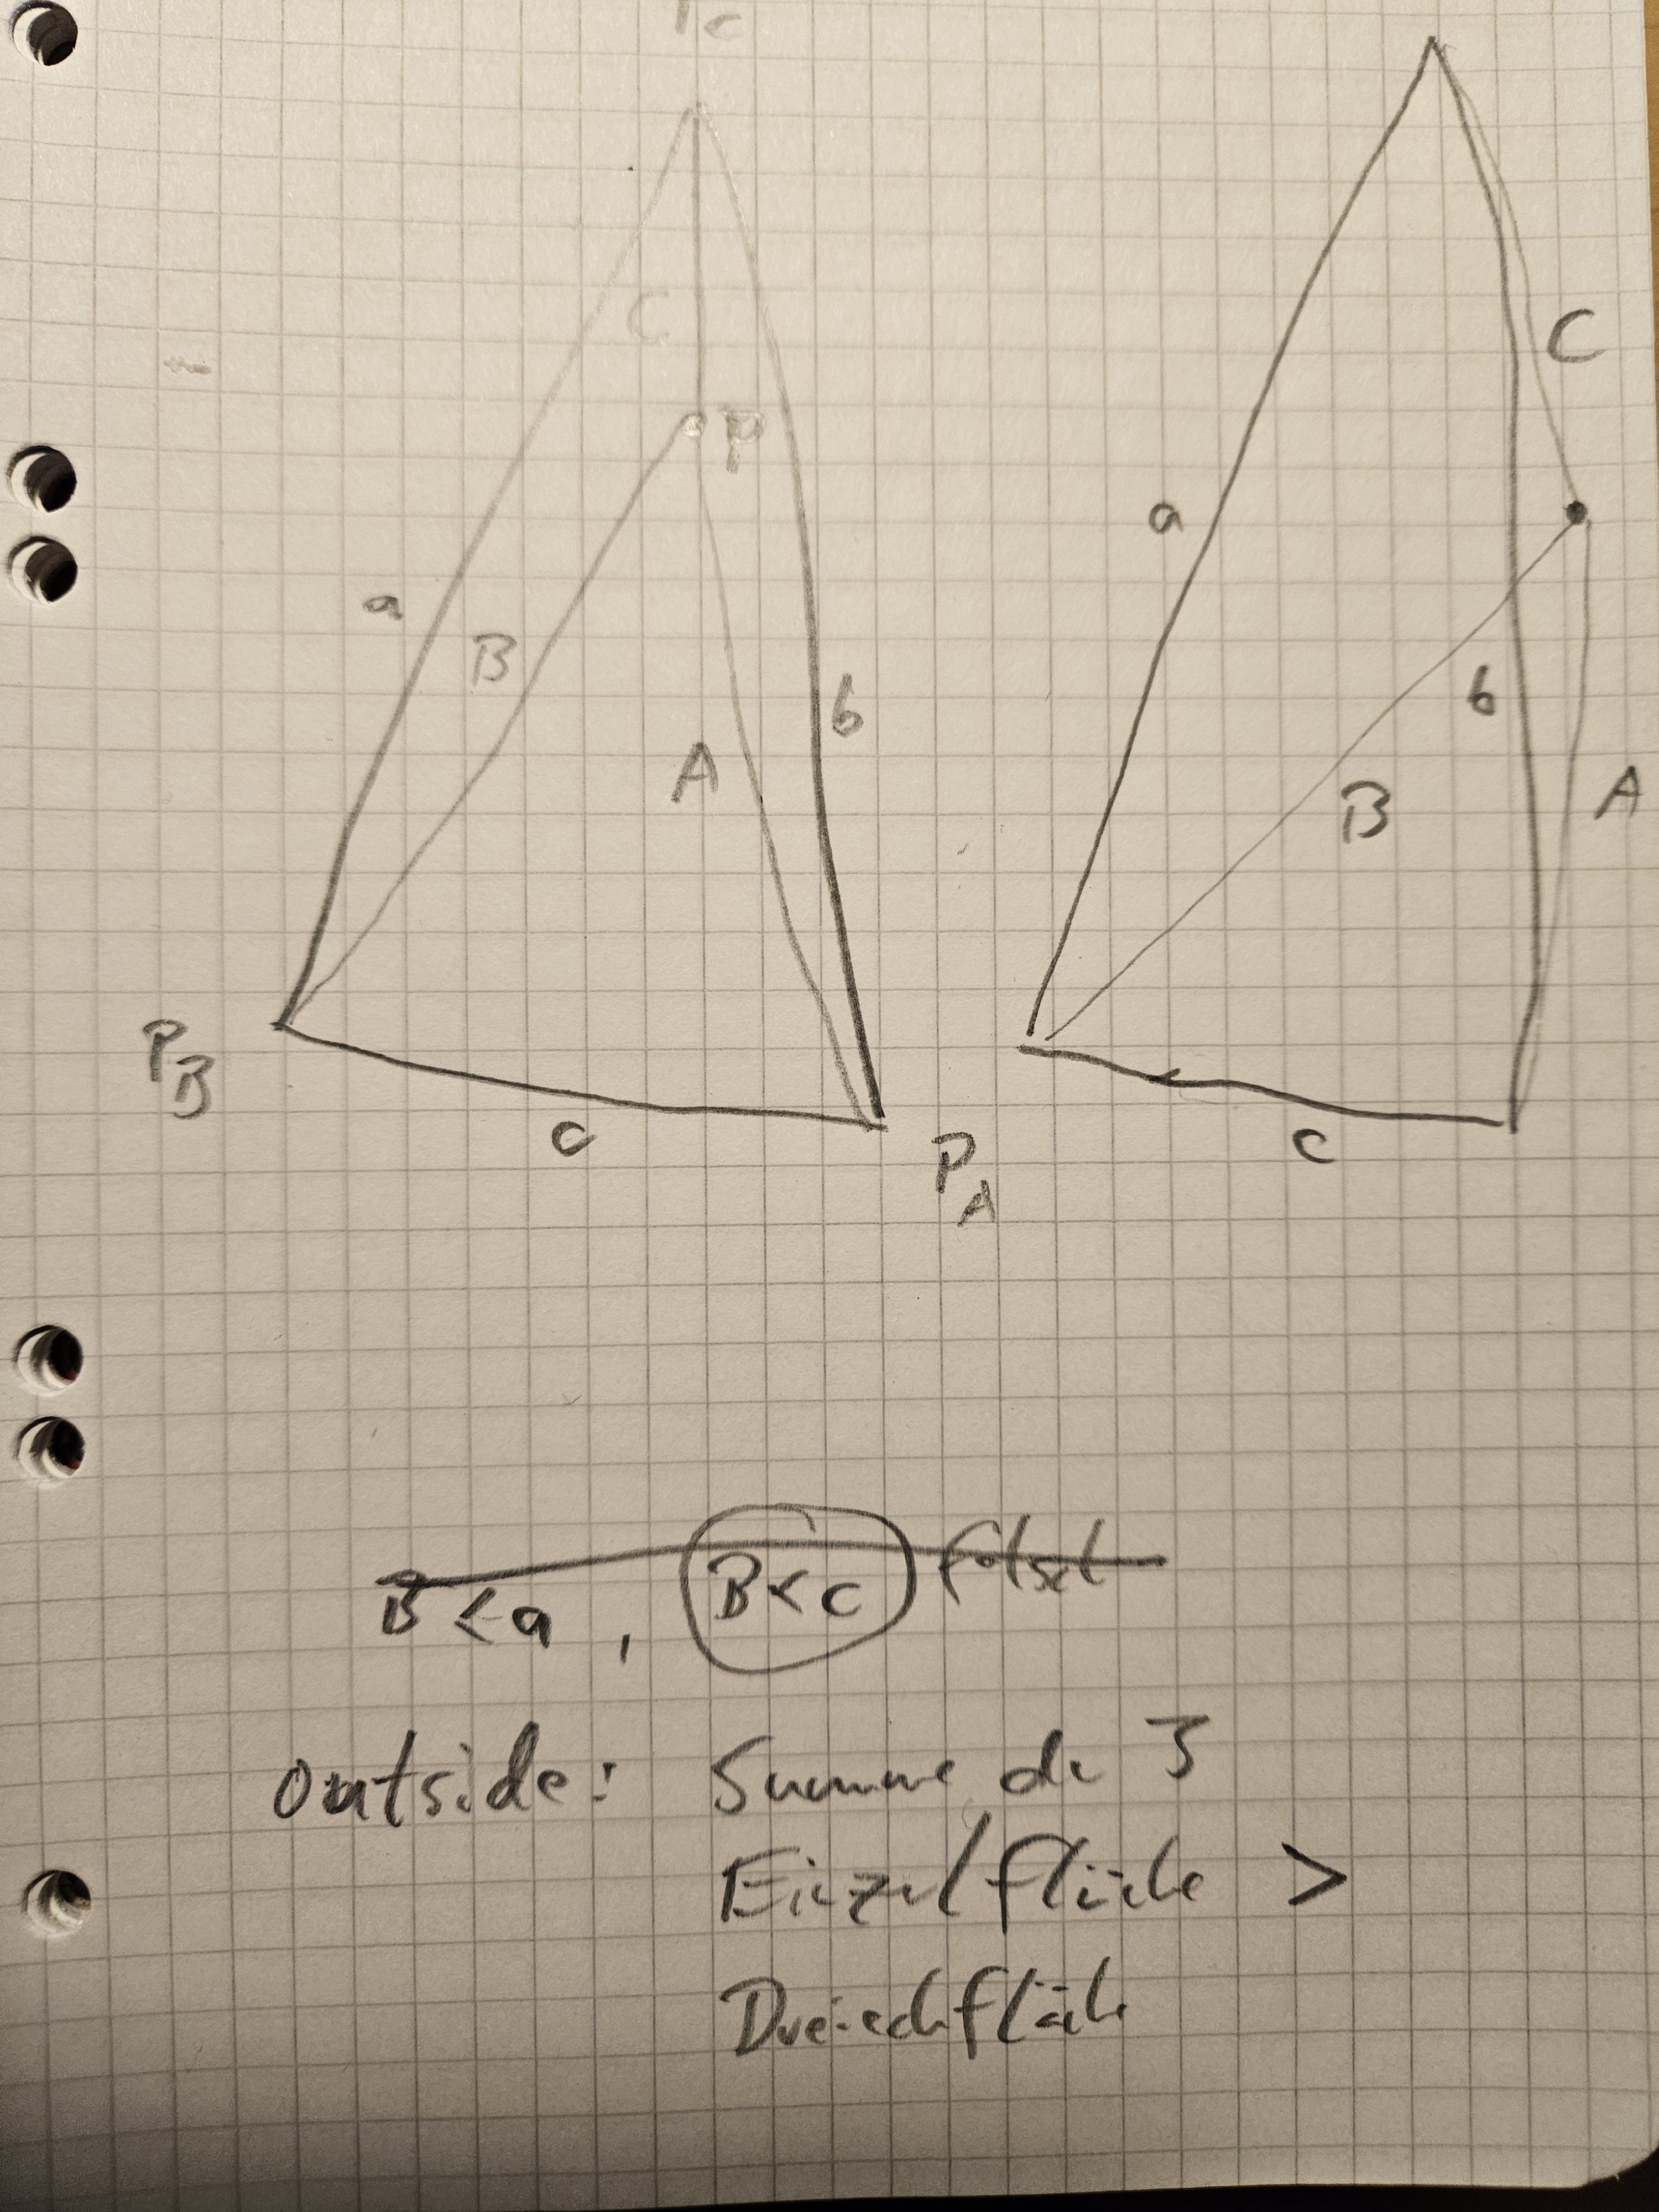 Pc
C
P
C
a
a
B
b
b
A
B
A
P_B
c
P_A
c
B < a , B < c falsch
outside: Summe der 3
Einzelfläche >
Dreiecksfläche